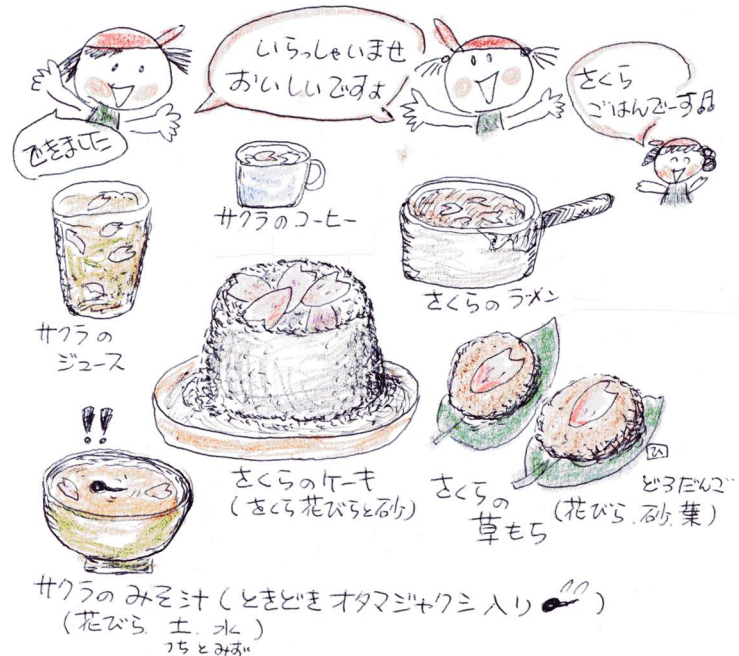 いらっしゃいませ
おいしいですょ
さくら
ごはんでーす♫
できました
サクラのコーヒー
さくらのラーメン
サクラの
ジュース
!!
さくらのケーキ
(さくら花びらと砂)
さくらの
草もち
ひ
どろだんご
(花びら、砂、葉)
サクラのみそ汁(ときどきオタマジャクシ入り)
(花びら、土、水)
つちとみず